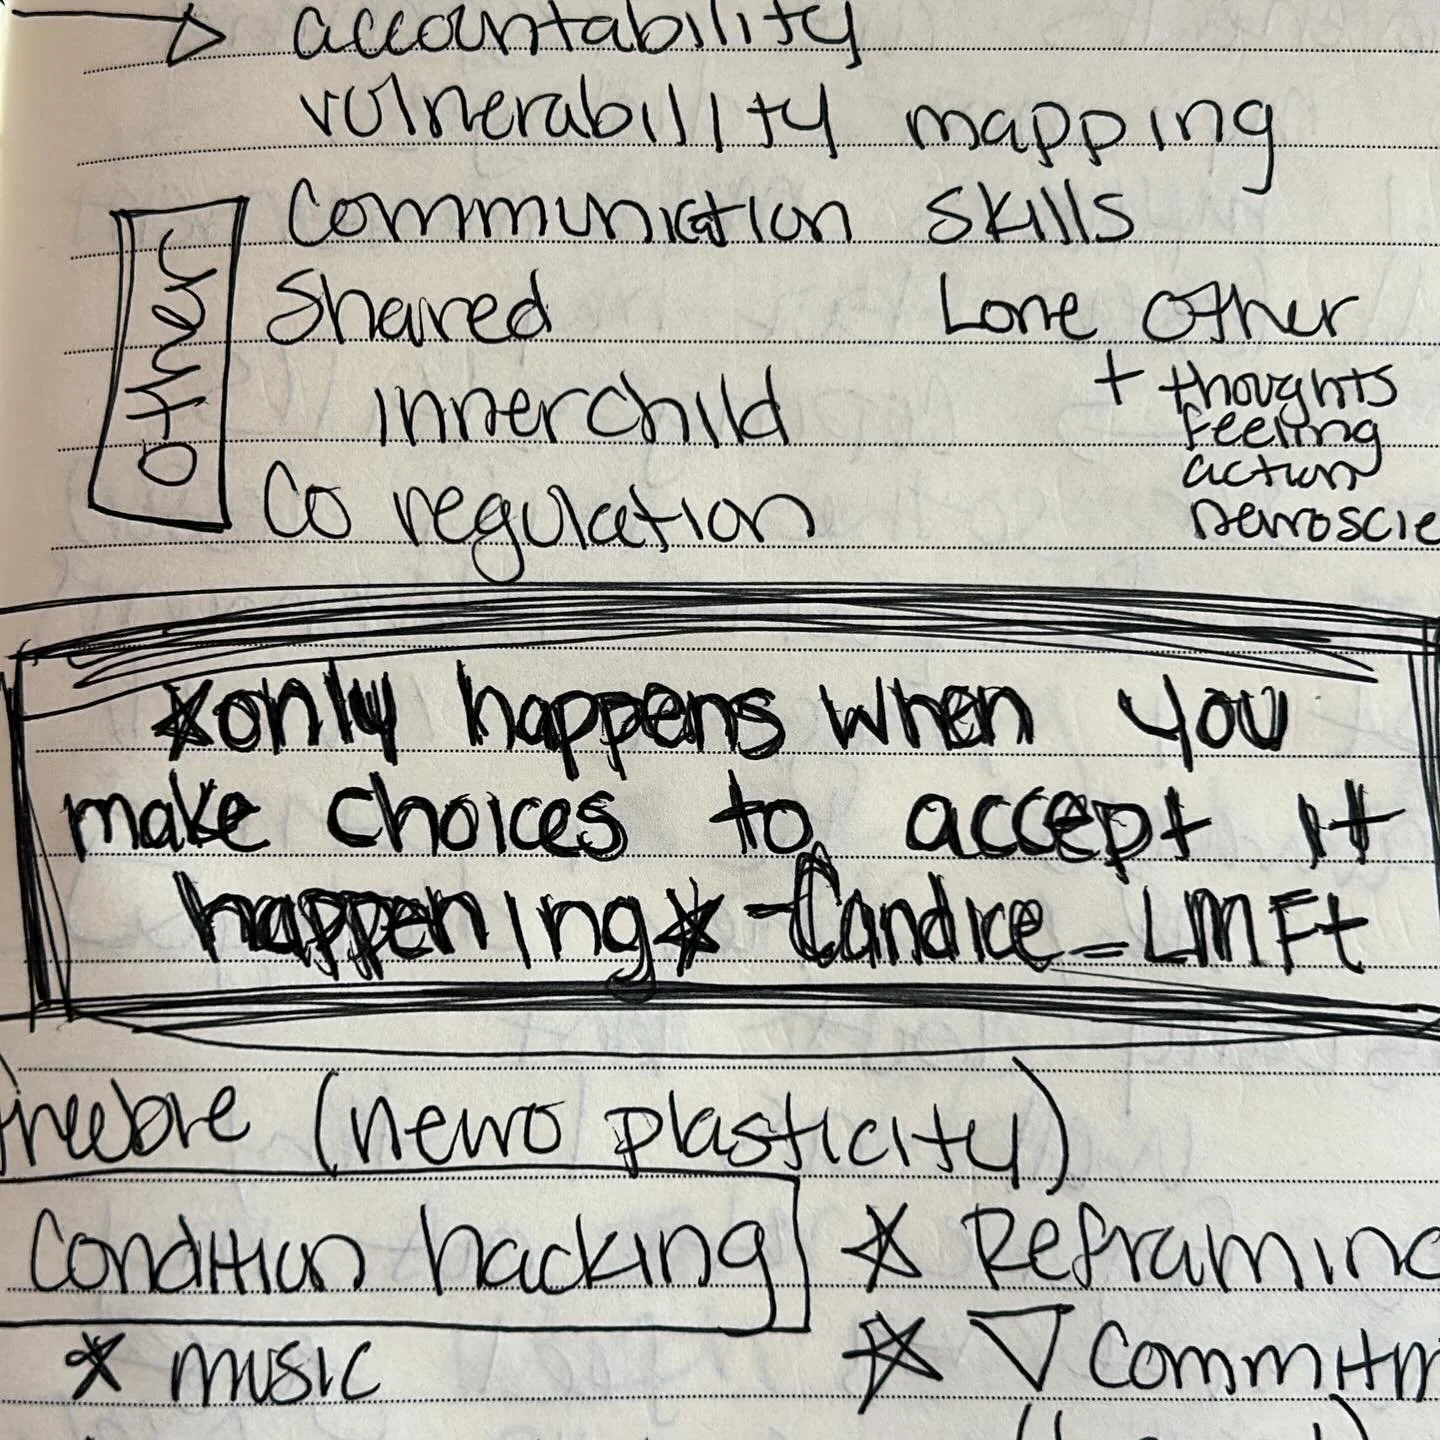 accountability
vulnerability mapping
Communication skills
Shared
Lone Other
innerchild
+ thoughts
feeling
action
neuroscie
Co regulation
other
*only happens when you
make choices to accept it
happening* - Candice = LMFt
(neuro plasticity)
Condition hacking
* Reframing
* music
* Commitm